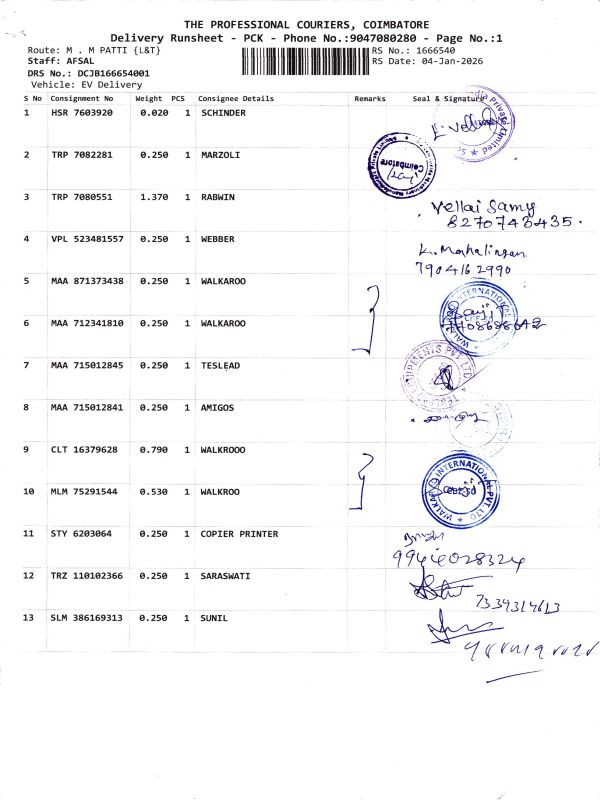 THE PROFESSIONAL COURIERS, COIMBATORE
Delivery Runsheet - PCK - Phone No.:9047080280 - Page No.:1
Route: M . M PATTI {L&T} RS No.: 1666540
Staff: AFSAL RS Date: 04-Jan-2026
DRS No.: DCJB166654001
Vehicle: EV Delivery
S No Consignment No Weight PCS Consignee Details Remarks Seal & Signature
1 HSR 7603920 0.020 1 SCHINDER
2 TRP 7082281 0.250 1 MARZOLI
Coimbatore
3 TRP 7080551 1.370 1 RABWIN
Vellai Samy
8270743435.
4 VPL 523481557 0.250 1 WEBBER
K. Mahalingam
7904162990
5 MAA 871373438 0.250 1 WALKAROO
6 MAA 712341810 0.250 1 WALKAROO
INTERNATIONAL
7 MAA 715012845 0.250 1 TESLEAD
8 MAA 715012841 0.250 1 AMIGOS
9 CLT 16379628 0.790 1 WALKROOO
10 MLM 75291544 0.530 1 WALKROO
INTERNATIONAL PVT. LTD
11 STY 6203064 0.250 1 COPIER PRINTER
12 TRZ 110102366 0.250 1 SARASWATI
13 SLM 386169313 0.250 1 SUNIL